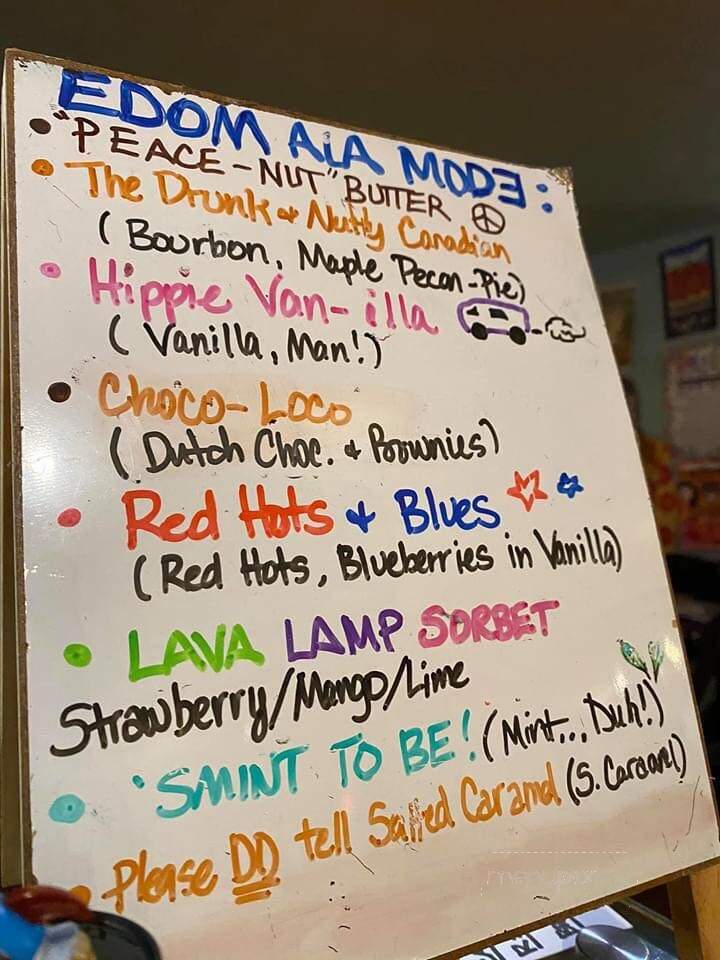 EDOM ALA MODE:
• "PEACE-NUT" BUTTER
• The Drunk & Nutty Canadian
(Bourbon, Maple Pecan-Pie)
• Hippie Van-illa
(Vanilla, Man!)
• Choco-Loco
(Dutch Choc. & Brownies)
• Red Hots & Blues
(Red Hots, Blueberries in Vanilla)
• LAVA LAMP SORBET
Strawberry/Mango/Lime
• 'SMINT TO BE! (Mint... Duh!)
• Please DO tell Salted Caramel (S. Caramel)